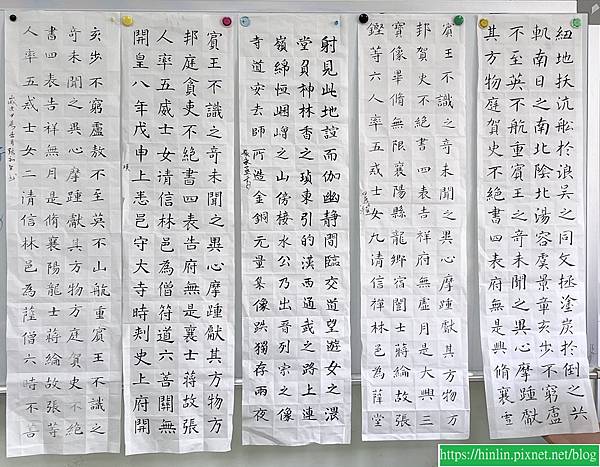 紐地扶沉舩於浪吳之同文拯塗炭於倒之共
南日之南北陸北湯容虞景章亥步不窮盧
不至英不航重賓王之奇未聞之異心摩踵獻
其方物庭賀史不絕書四表府無是興脩襄
賓王不識之奇未聞之異心摩踵獻其方物万
邦賀史不絕書四表吉祥府無虛月是大興三
寶像畢脩無限襄陽縣龍鄉宿闇士蔣綸故張
鏗等六人率五戒士女九清信禪林邑為薩堂
射見此地誼而伽幽靜間臨交道望遊女之
堂負神林香之瑣東引的漢西通武之路上連
嶺綿恒崓嶒之山傍接水公乃出哥列宗之像
寺道安去師所造金銅元量像趺獨存兩夜
賓王不識之奇未聞之異心摩踵獻其方物方
邦庭貪吏不絕書四表告府無是襄士蔣故張
人率五威士女清信林邑為僧符道六菩關無
開皇八年戊申上悉邑守大寺時刾史上府開
亥步不窮盧敖不至英不山航重賓王不識之
奇未聞之異心摩踵獻其方物方庭賀史不絕
書四表吉祥無月是脩襄陽龍士蔣綸故張等
人率五戒士女二清信林邑為薩僧六時不菩
https://hinlin.pixnet.net/blog